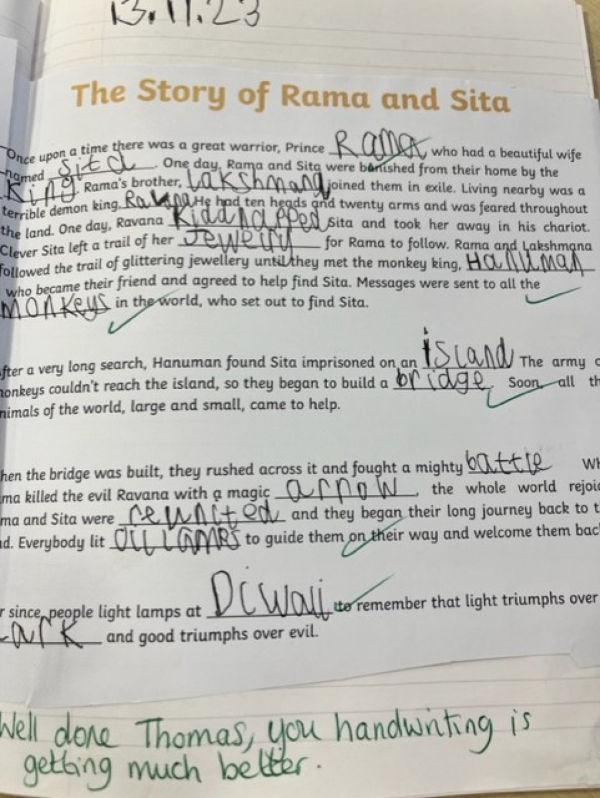 13.11.23
The Story of Rama and Sita
Once upon a time there was a great warrior, Prince Rama who had a beautiful wife
named sita. One day, Rama and Sita were banished from their home by the
King. Rama's brother, Lakshmana joined them in exile. Living nearby was a
terrible demon king, Ravana He had ten heads and twenty arms and was feared throughout
the land. One day, Ravana Kiddnapped Sita and took her away in his chariot.
Clever Sita left a trail of her Jewelry for Rama to follow. Rama and Lakshmana
followed the trail of glittering jewellery until they met the monkey king, Hanuman
who became their friend and agreed to help find Sita. Messages were sent to all the
monkeys in the world, who set out to find Sita.
fter a very long search, Hanuman found Sita imprisoned on an island The army o
onkeys couldn't reach the island, so they began to build a bridge. Soon, all th
nimals of the world, large and small, came to help.
hen the bridge was built, they rushed across it and fought a mighty battle Wh
ma killed the evil Ravana with a magic arrow, the whole world rejoic
ma and Sita were reunited and they began their long journey back to t
d. Everybody lit oil lamps to guide them on their way and welcome them bac
r since, people light lamps at Diwali to remember that light triumphs over
ark and good triumphs over evil.
Well done Thomas, you handwriting is
getting much better.